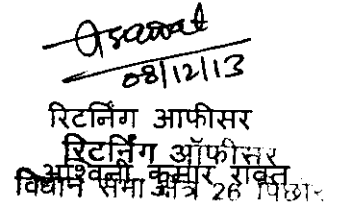 08/12/13
रिटर्निंग आफीसर
रिटर्निंग ऑफीसर
अश्विनी कुमार रावत
विधान सभा क्षेत्र 26 पिछोर